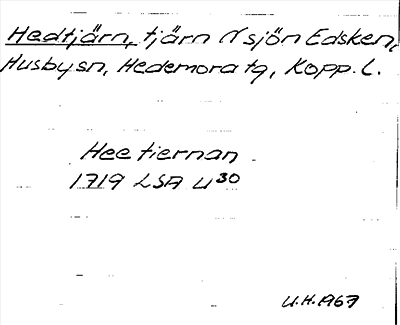 Hedtjärn, tjärn N sjön Edsken,
Husby sn, Hedemora tg, Kopp. l.
Hee tiernan
1719 LSA U30
U.H. 1967